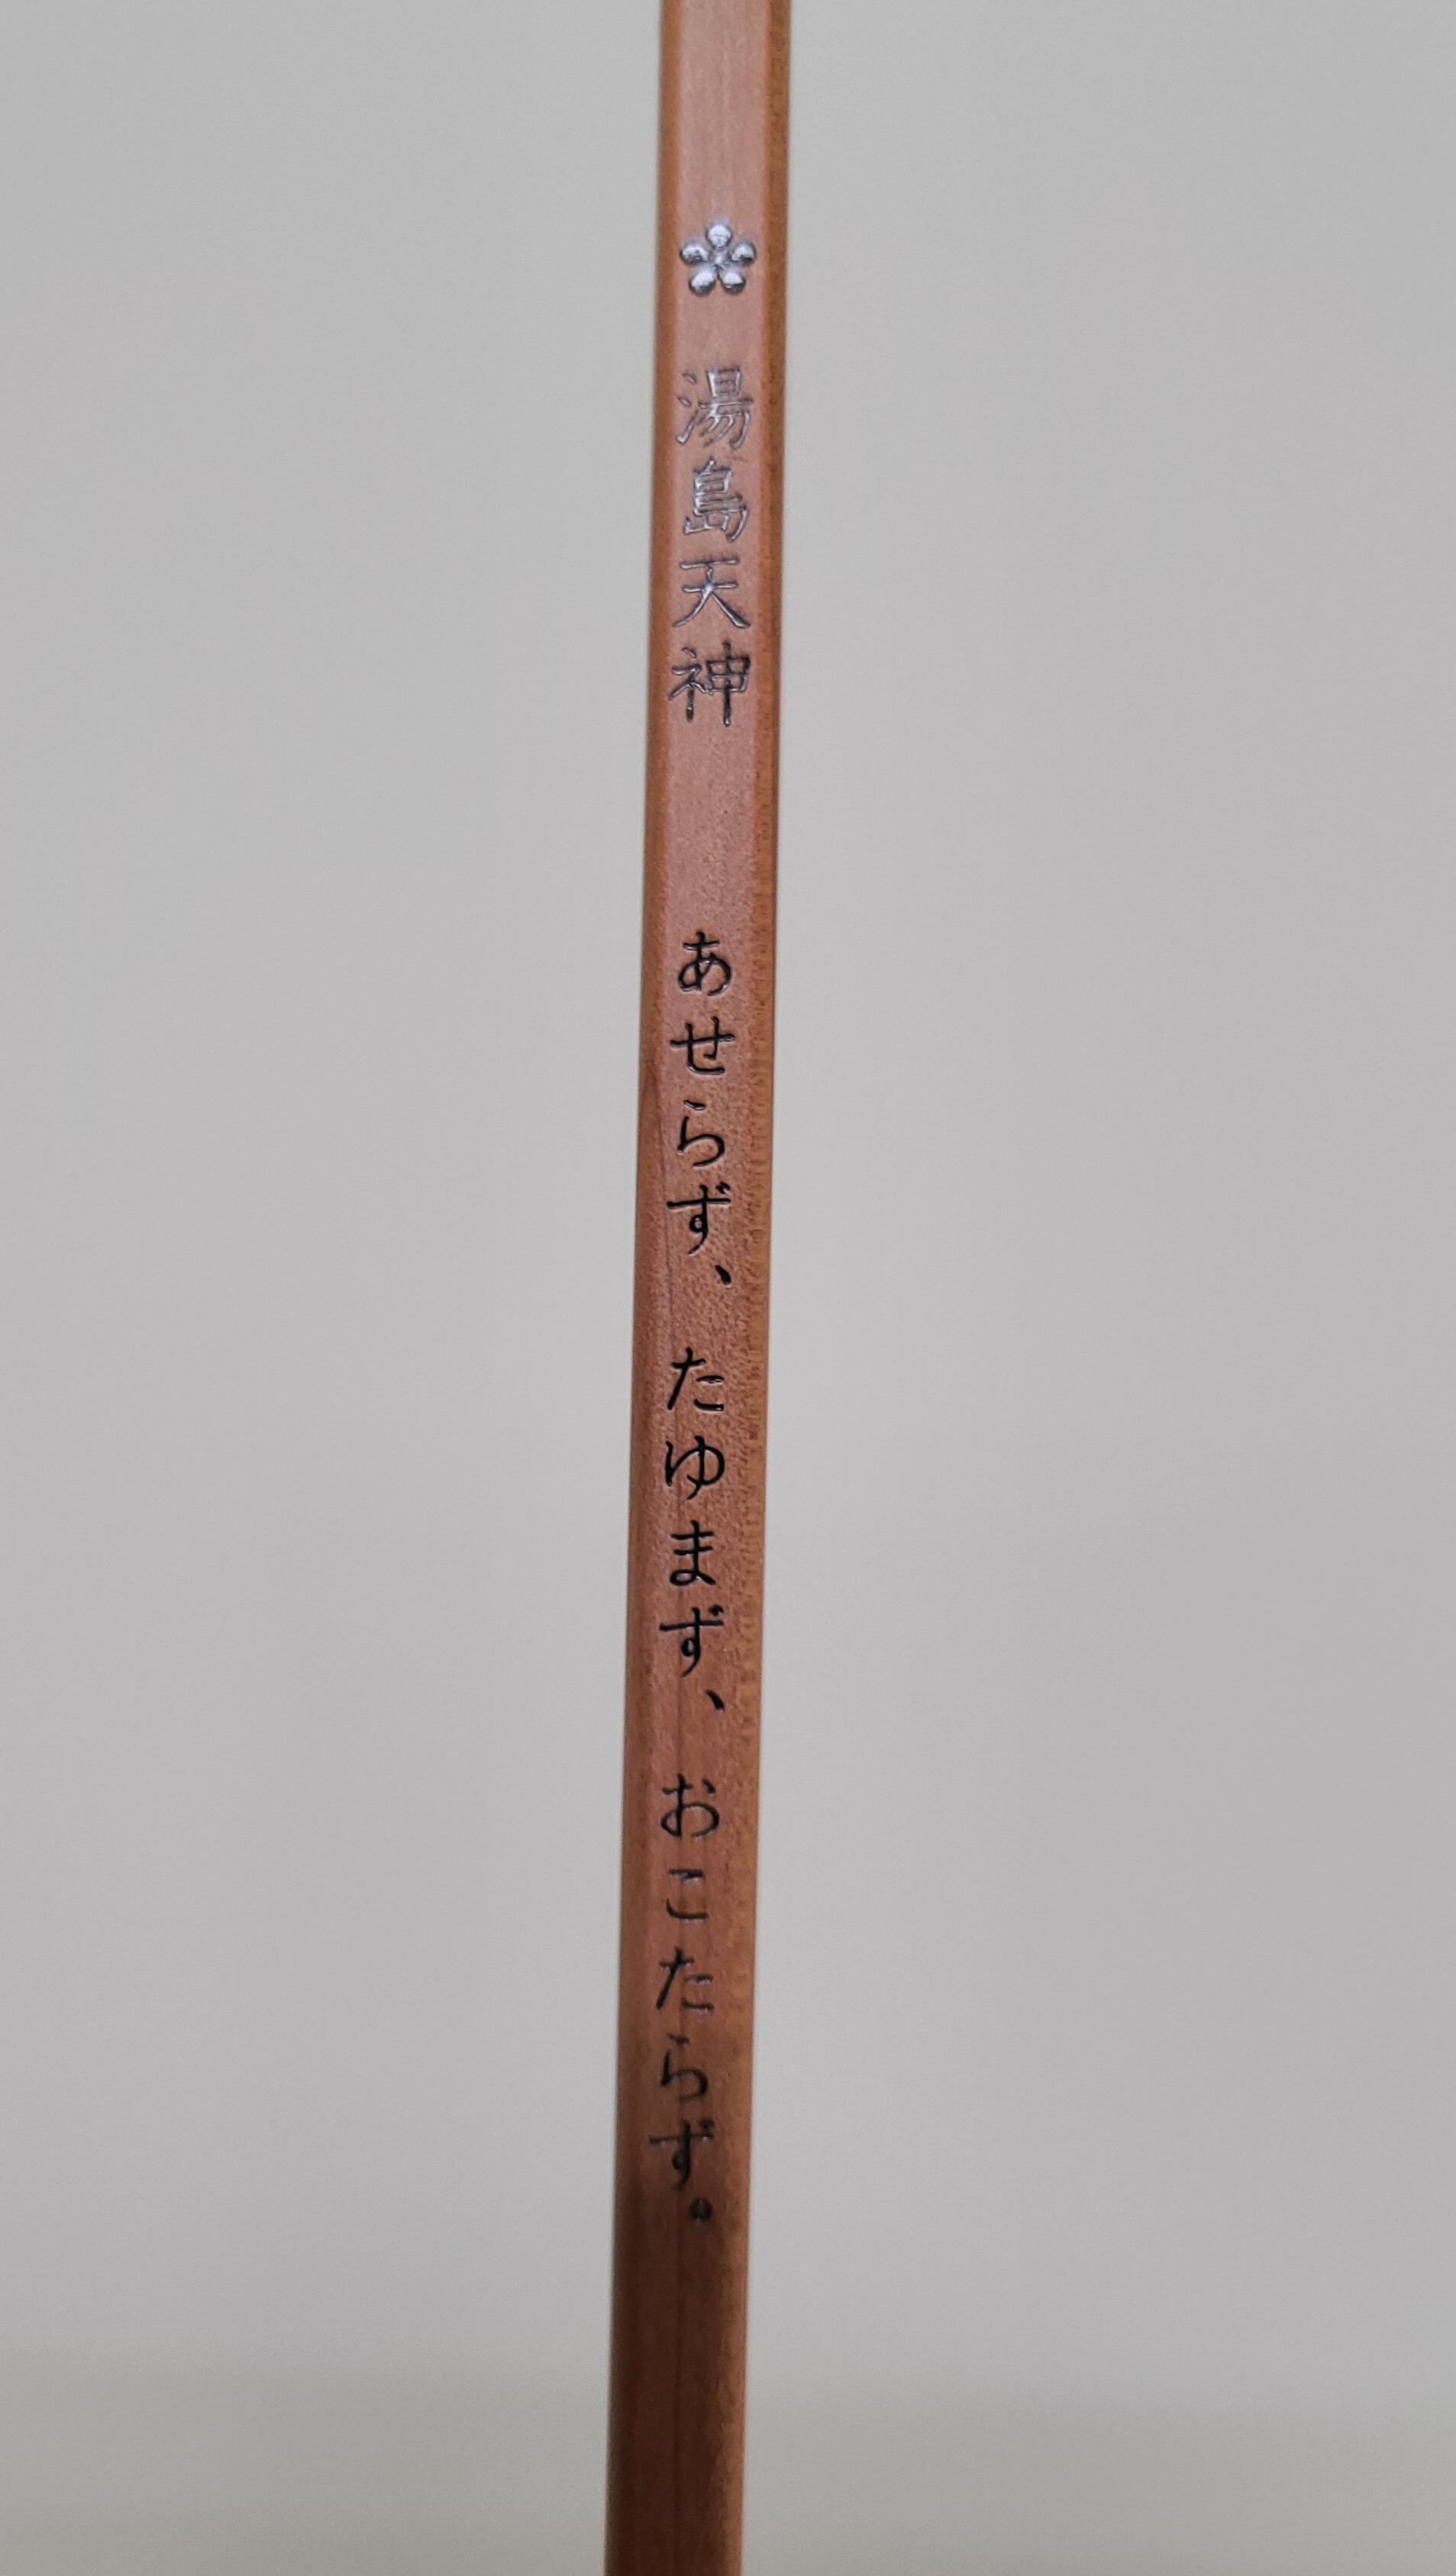 湯島天神 あせらず、たゆまず、おこたらず。